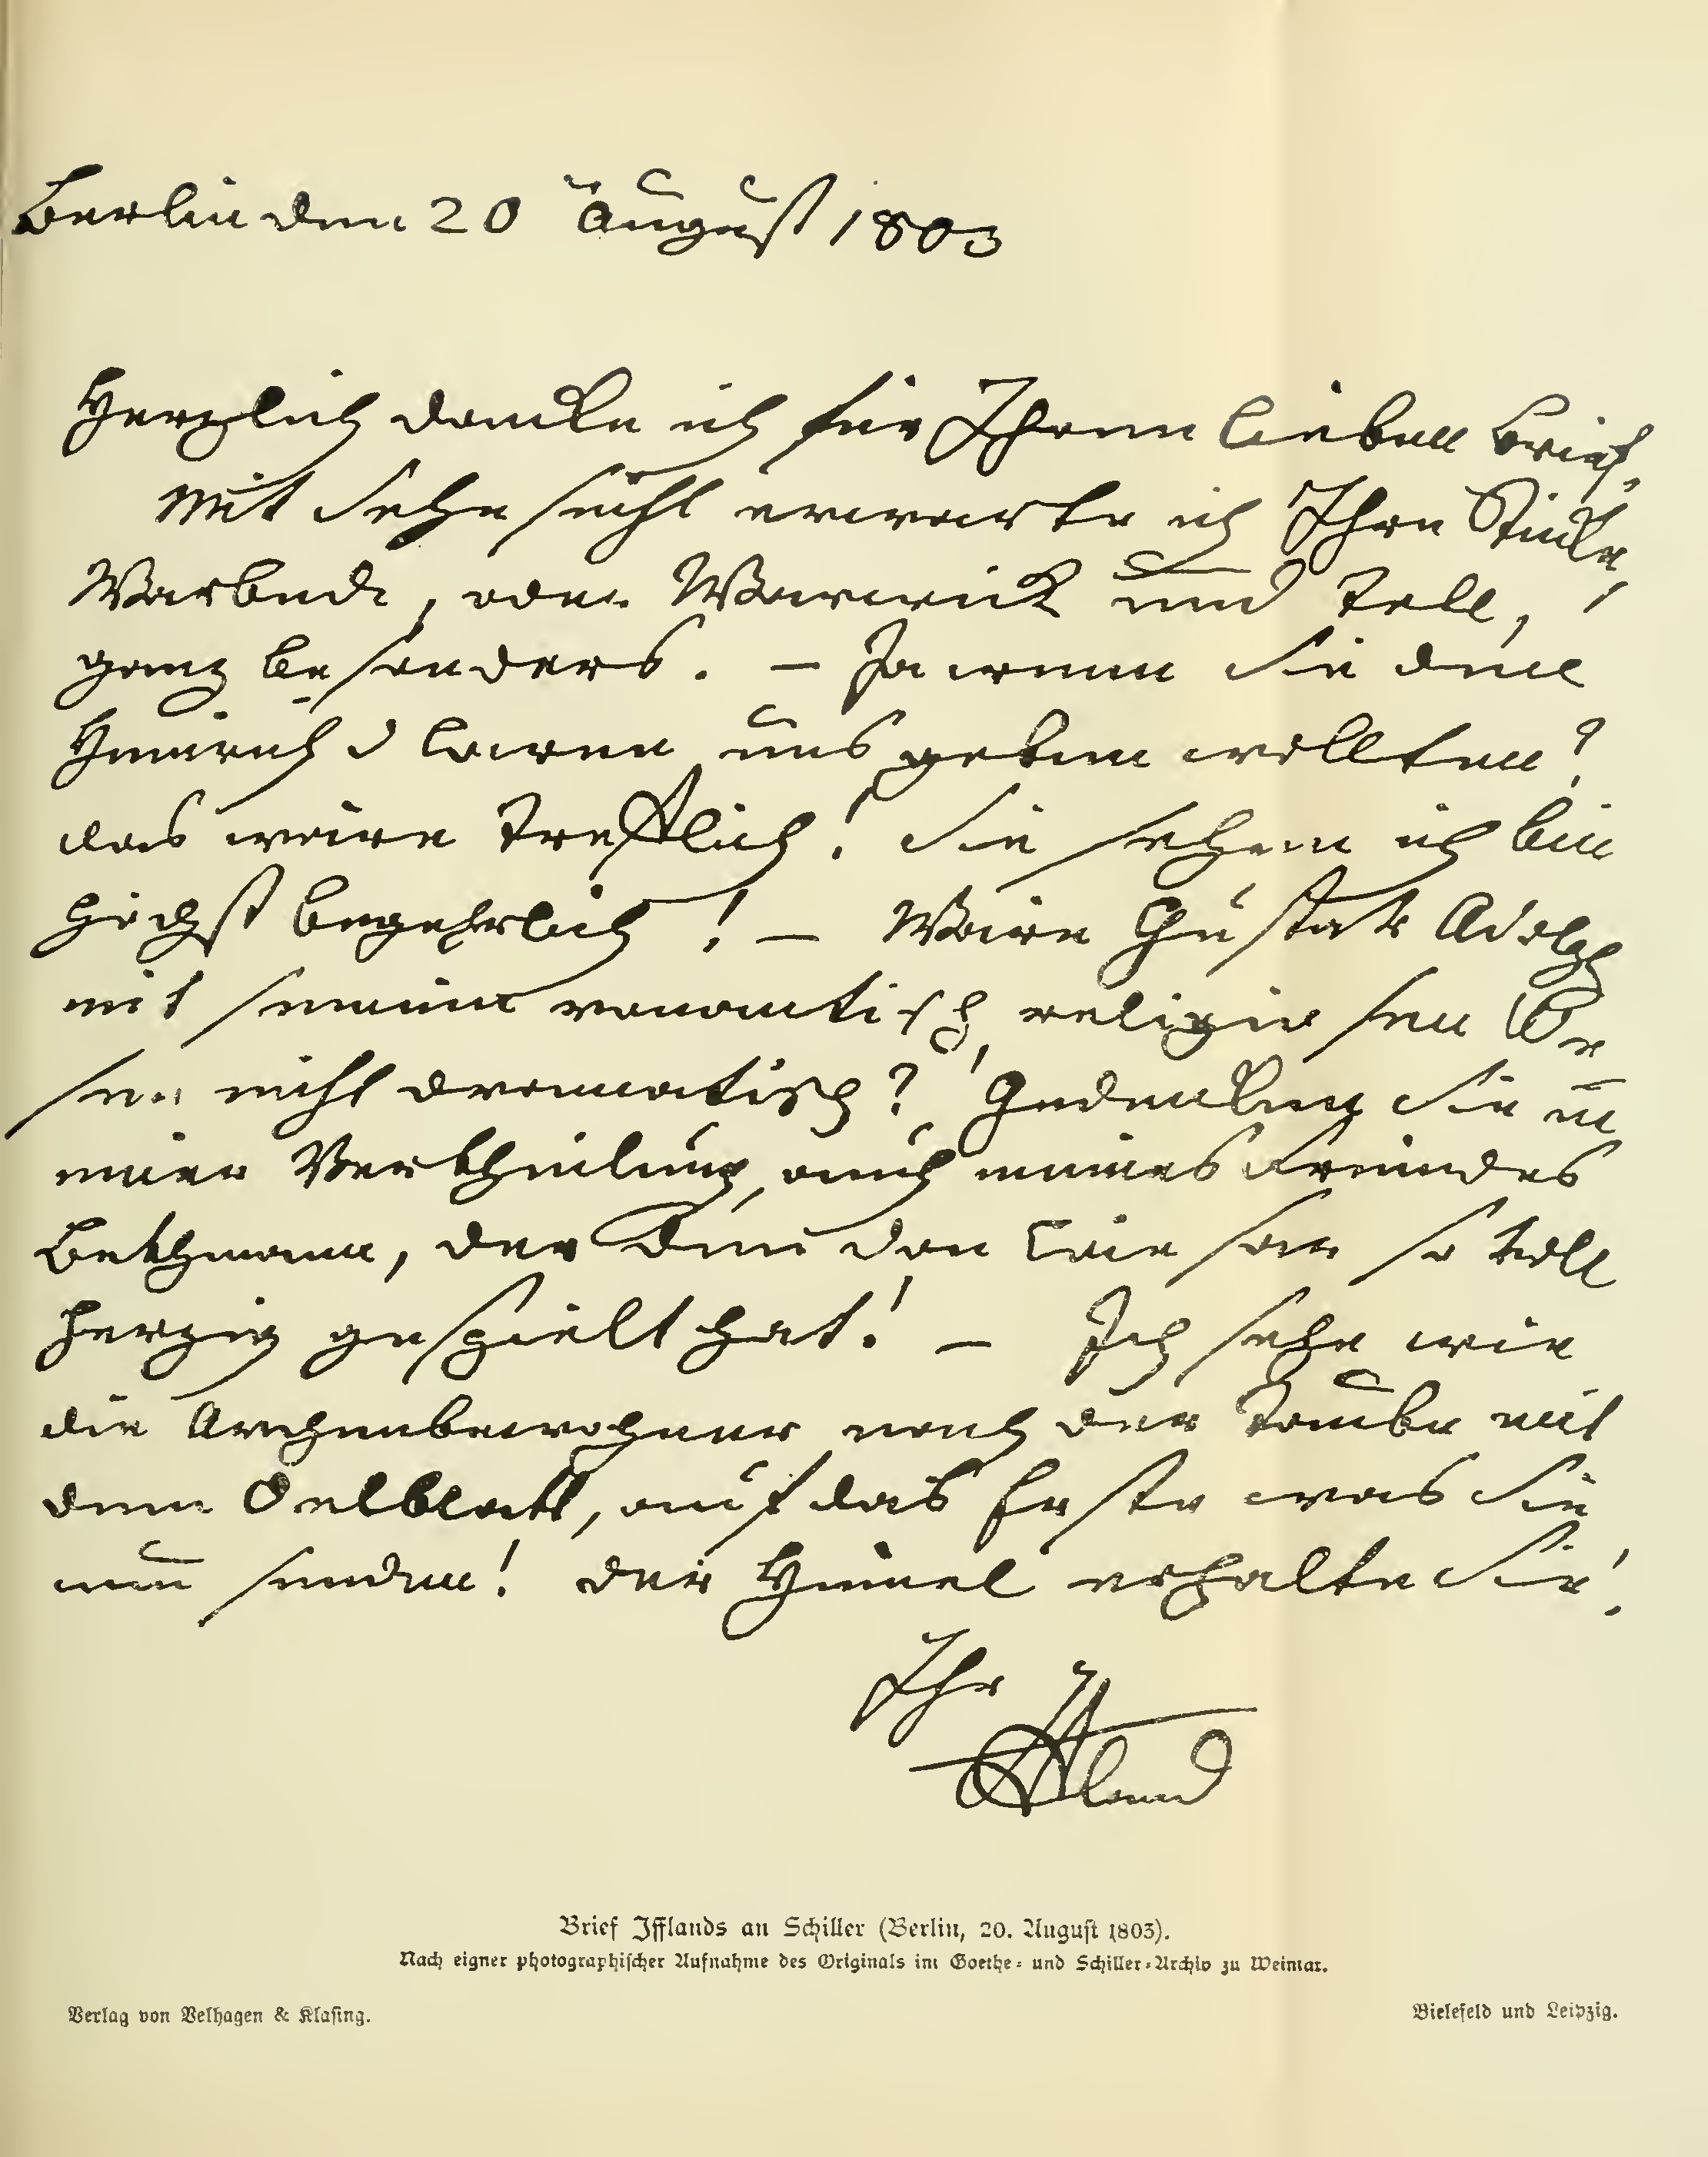 Berlin den 20 August 1803
Herzlich danke ich für Ihren lieben Brief.
Mit Sehnsucht erwarte ich Ihre Stücke,
Warbeck, oder Warwick und Tell,
ganz besonders. – Ja wenn Sie den
Heinrich d Löwen uns geben wollten?
das wäre trefflich! Sie sehen ich bin
höchst begehrlich! – Wäre Gustav Adolph
mit seinem romantisch, religiösen We
sen nicht dramatisch? Gedenken Sie in
einer Vertheilung, auch meines Freundes
Bethmann, der den Don Caesar so voll
herzig gespielt hat! – Ich sehe wie
die Archenbewohner nach der Taube mit
dem Oelblatt, auf das Erste was Sie
nun senden! der Himel erhalte Sie!
Ihr
Iffland
Brief Ifflands an Schiller (Berlin, 20. August 1803).
Nach eigner photographischer Aufnahme des Originals im Goethe- und Schiller-Archiv zu Weimar.
Verlag von Velhagen & Klasing. Bielefeld und Leipzig.